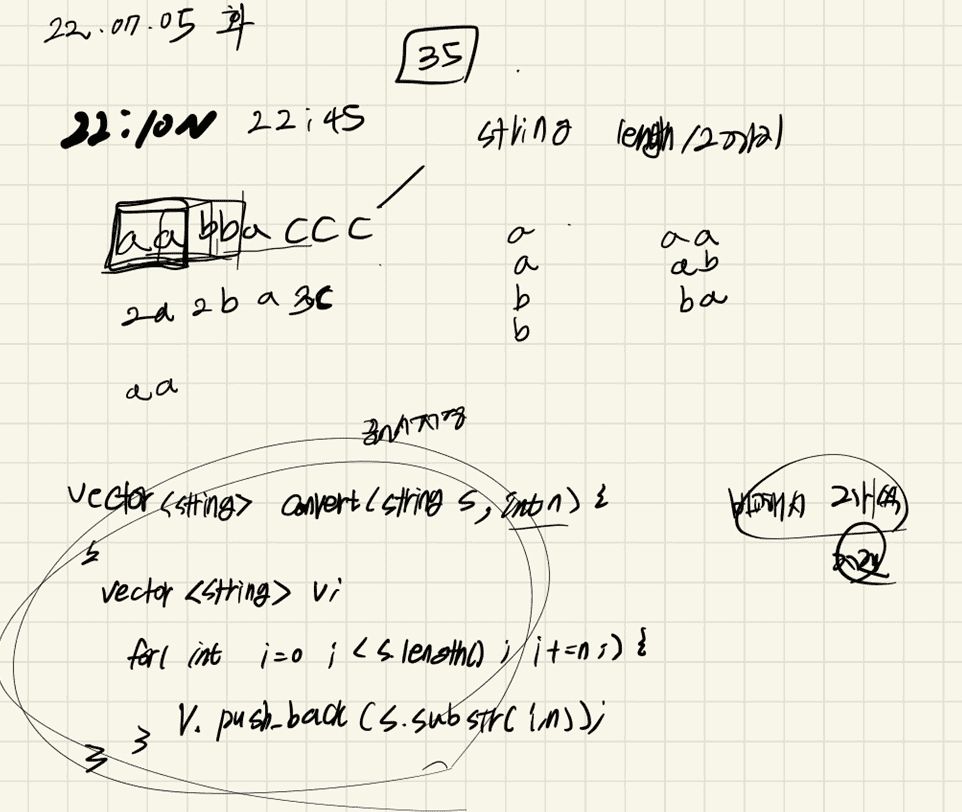 22.07.05 화
35
22:10 22:45
string length/2
aabbaccc
2a2ba3c
a
a
b
b
aa
ab
ba
aa
vector<string> convert(string s, int n) {
vector<string> v;
for( int i=0 ; < s.length() ; i+=n ;) {
V. push_back (s.substr( i,n));
}
}